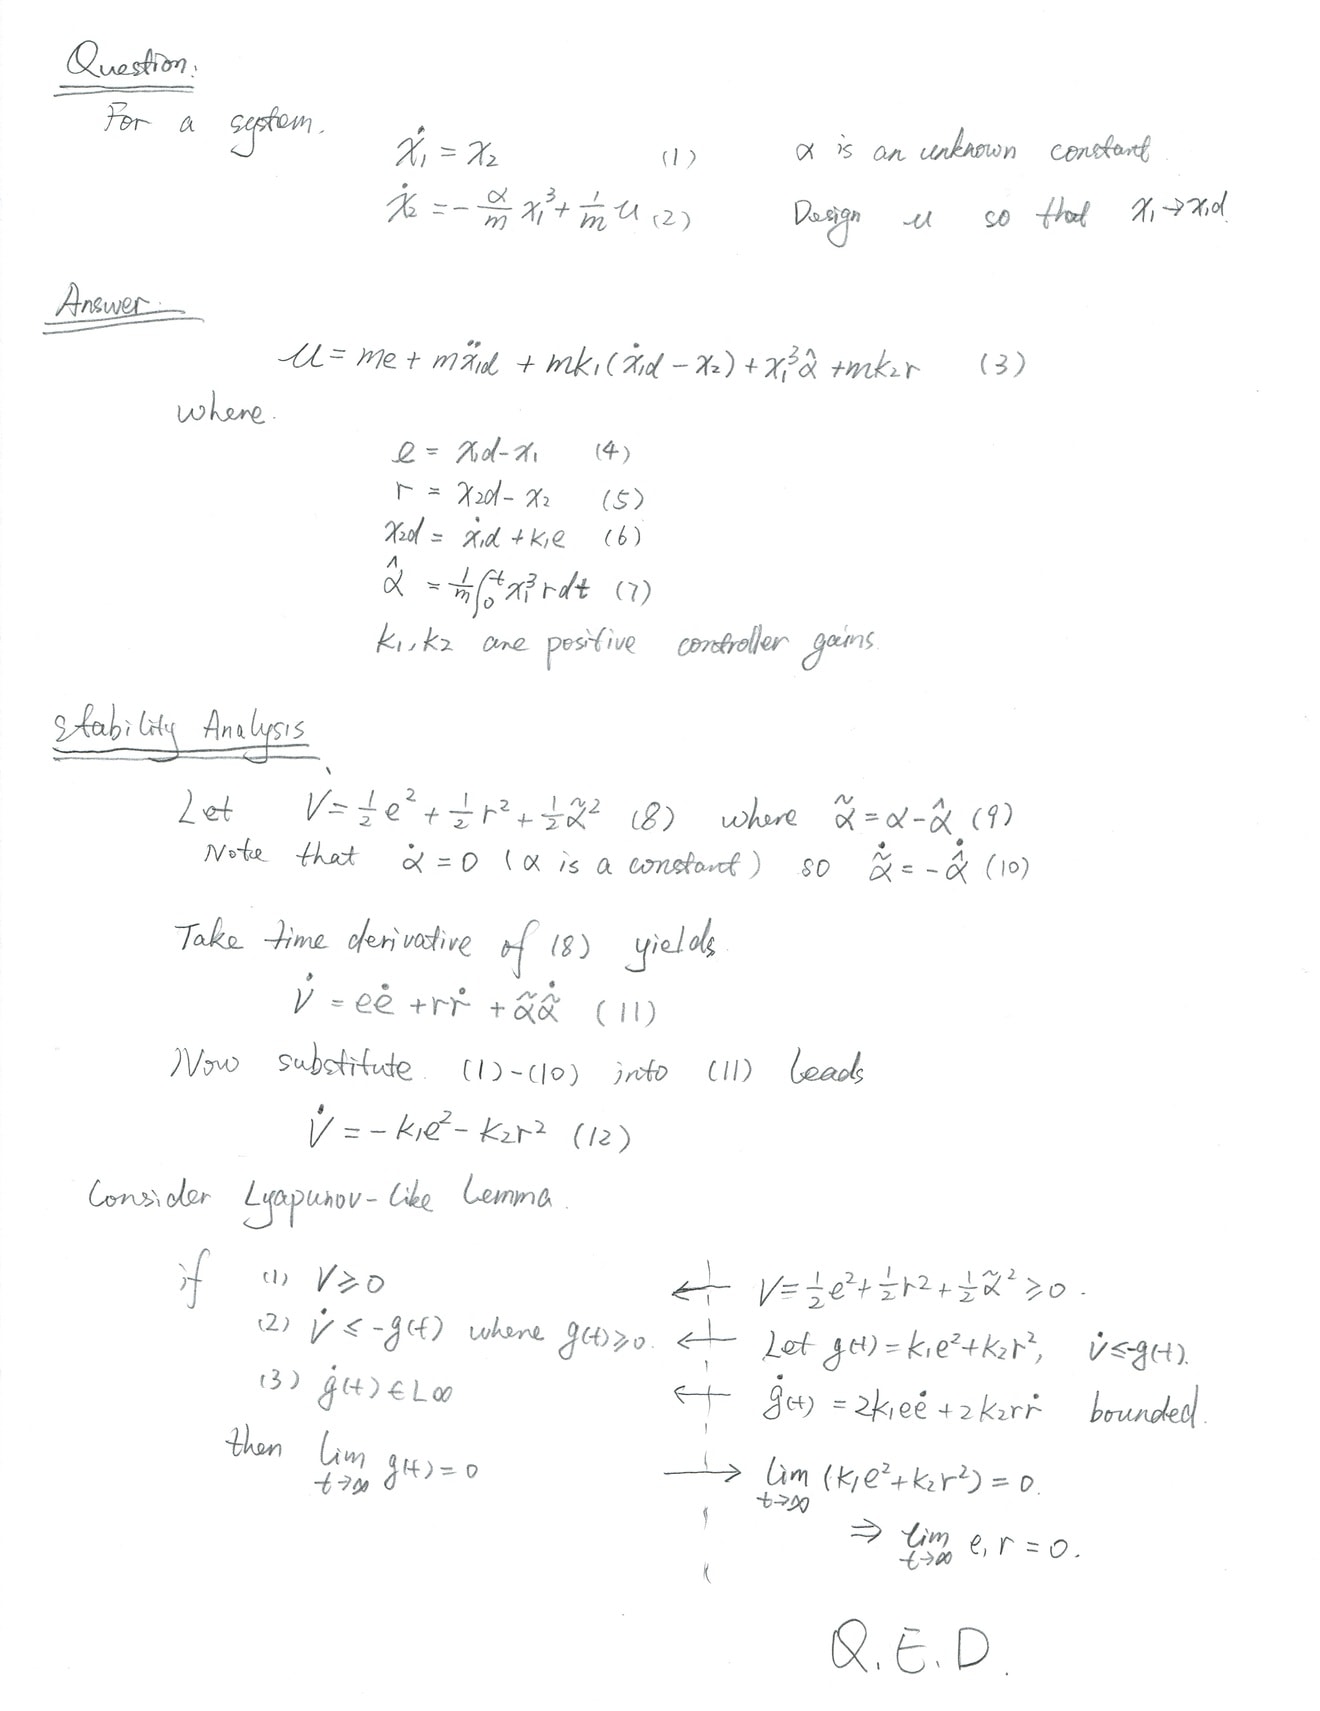 Question:
For a system.
ẋ₁ = x₂ (1) α is an unknown constant.
ẋ₂ = -α/m x₁³ + 1/m u (2) Design u so that x₁→x₁d.
Answer.
u = me + mẍ₁d + mk₁(ẋ₁d - x₂) + x₁³α̂ + mk₂r (3)
where.
e = x₁d - x₁ (4)
r = x₂d - x₂ (5)
x₂d = ẋ₁d + k₁e (6)
α̂ = 1/m ∫₀ᵗ x₁³ r dt (7)
k₁, k₂ are positive controller gains.
Stability Analysis
Let V = ½e² + ½r² + ½α̃² (8) where α̃ = α - α̂ (9)
Note that α̇ = 0 (α is a constant) so α̃̇ = -α̂̇ (10)
Take time derivative of (8) yields.
V̇ = eė + rṙ + α̃α̃̇ (11)
Now substitute. (1)-(10) into (11) leads
V̇ = -k₁e² - k₂r² (12)
Consider Lyapunov-like Lemma.
if (1) V ≥ 0 ← V = ½e² + ½r² + ½α̃² ≥ 0.
(2) V̇ ≤ -g(t) where g(t) ≥ 0. ← Let g(t) = k₁e² + k₂r², V̇ ≤ -g(t).
(3) ġ(t) ∈ L∞ ← ġ(t) = 2k₁eė + 2k₂rṙ bounded.
then lim t→∞ g(t) = 0 → lim t→∞ (k₁e² + k₂r²) = 0.
⇒ lim t→∞ e, r = 0.
Q.E.D.